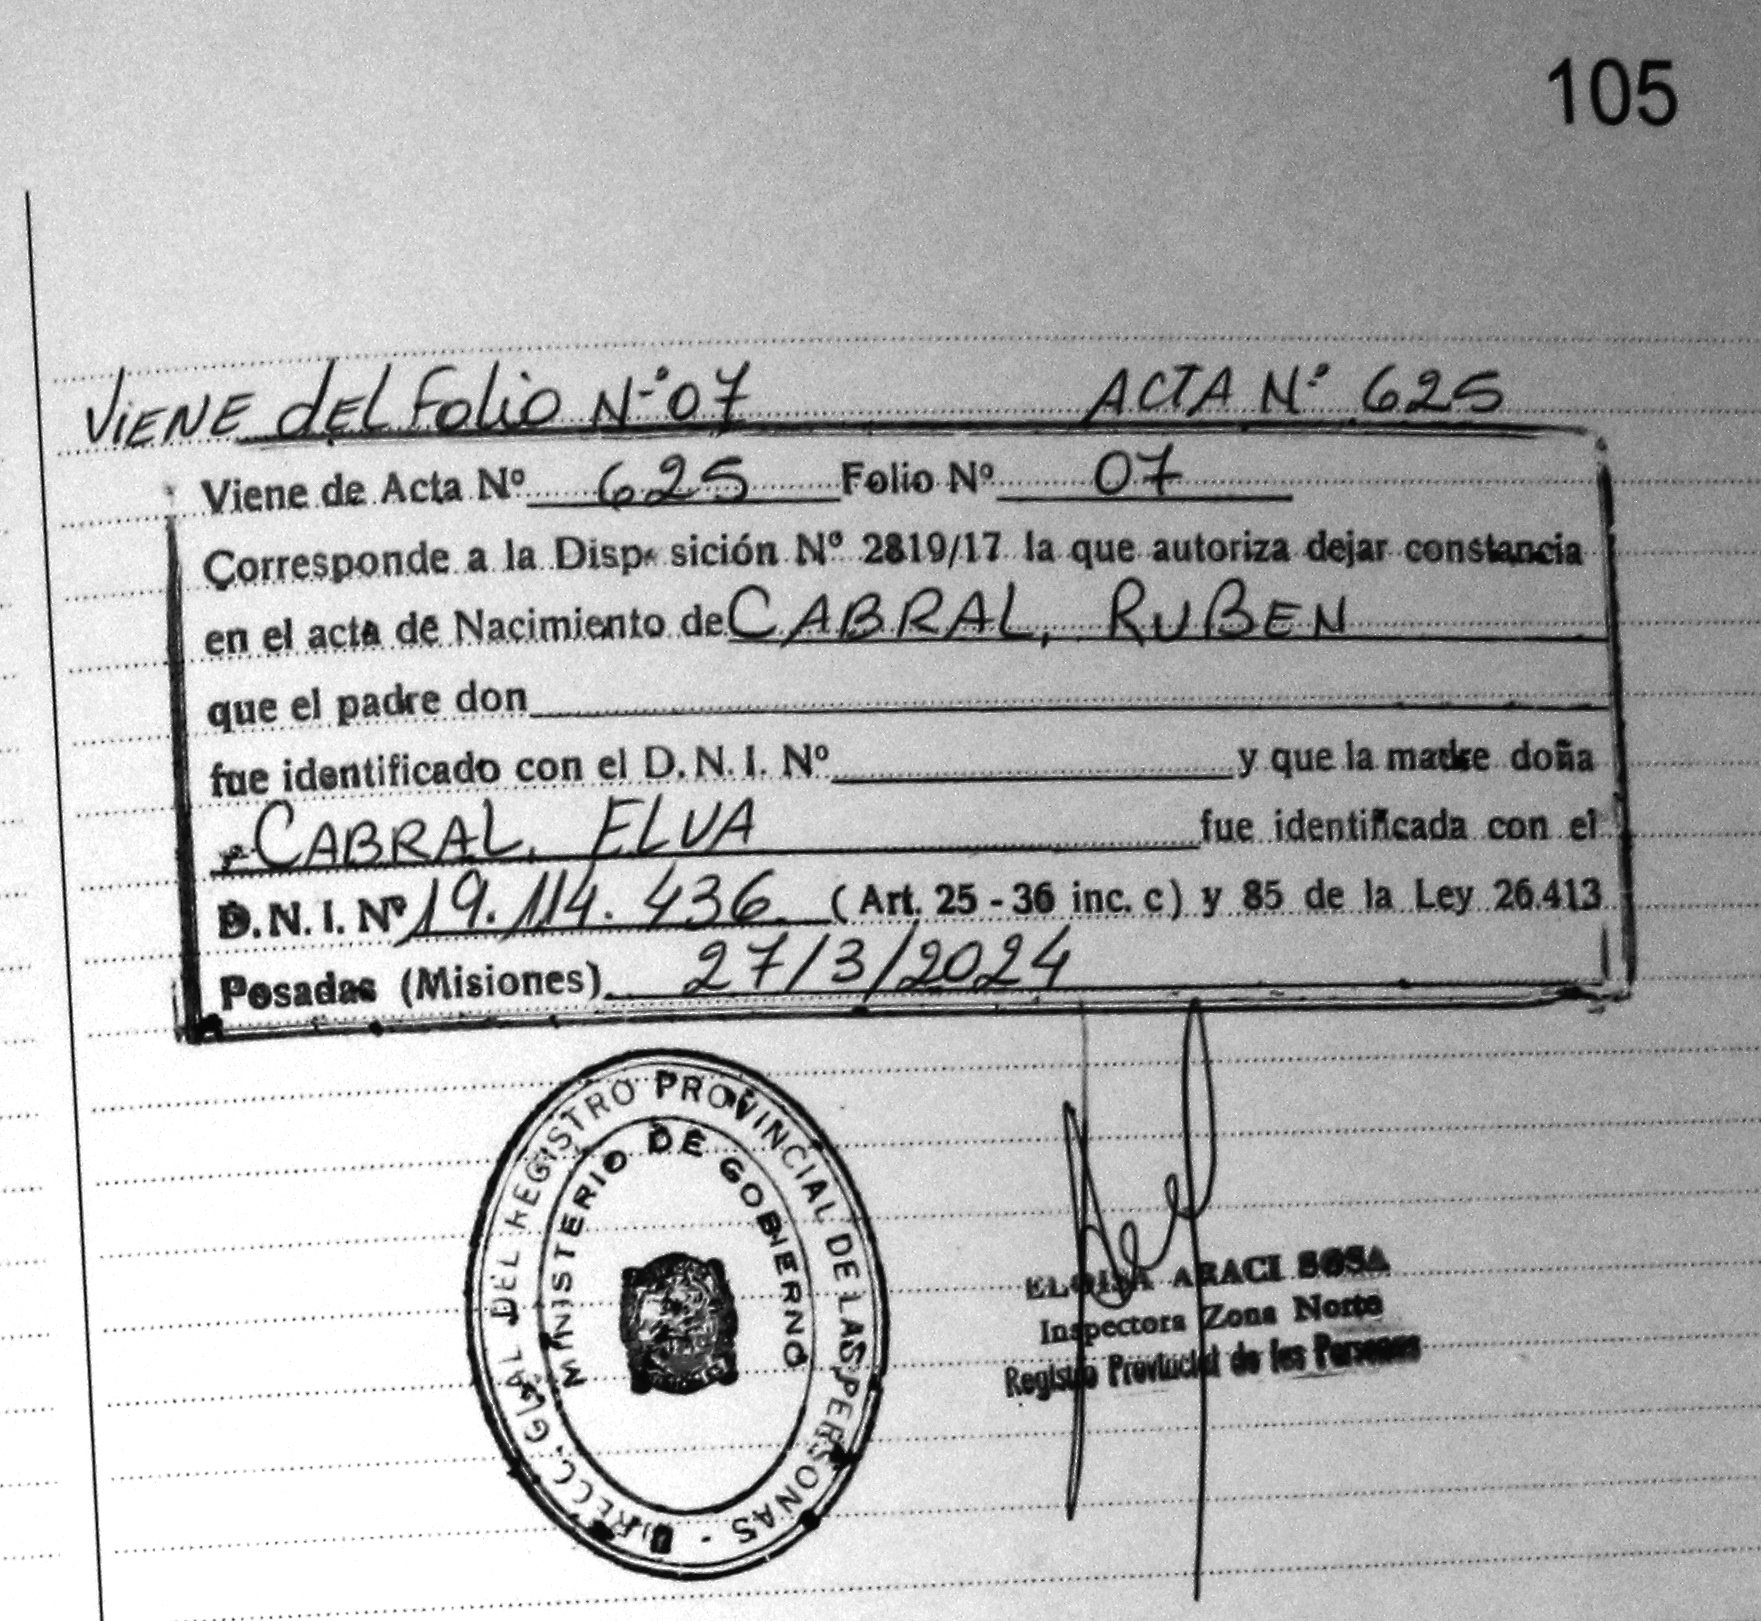 105
VIENE DEL FOLIO N° 07 ACTA N° 625
Viene de Acta Nº 625 Folio Nº 07
Corresponde a la Disp sición Nº 2819/17 la que autoriza dejar constancia
en el acta de Nacimiento de CABRAL, RUBEN
que el padre don
fue identificado con el D.N.I. Nº y que la madre doña
CABRAL, ELVA fue identificada con el
D.N.I. Nº 19.114.436 (Art. 25 - 36 inc. c) y 85 de la Ley 26.413
Posadas (Misiones) 27/3/2024
DIRECC. GRAL DEL REGISTRO PROVINCIAL DE LAS PERSONAS -
MINISTERIO DE GOBIERNO
ELOISA ARACI SOSA
Inspectora Zona Norte
Registro Provincial de las Personas